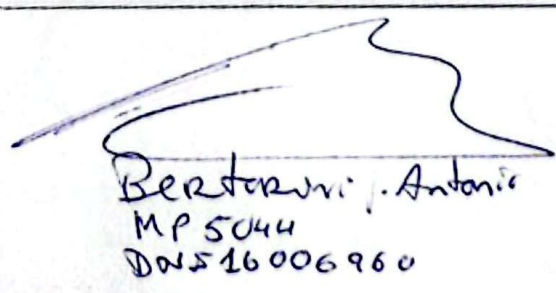 Bertorini, Antonio
MP 5044
DNS 16006960